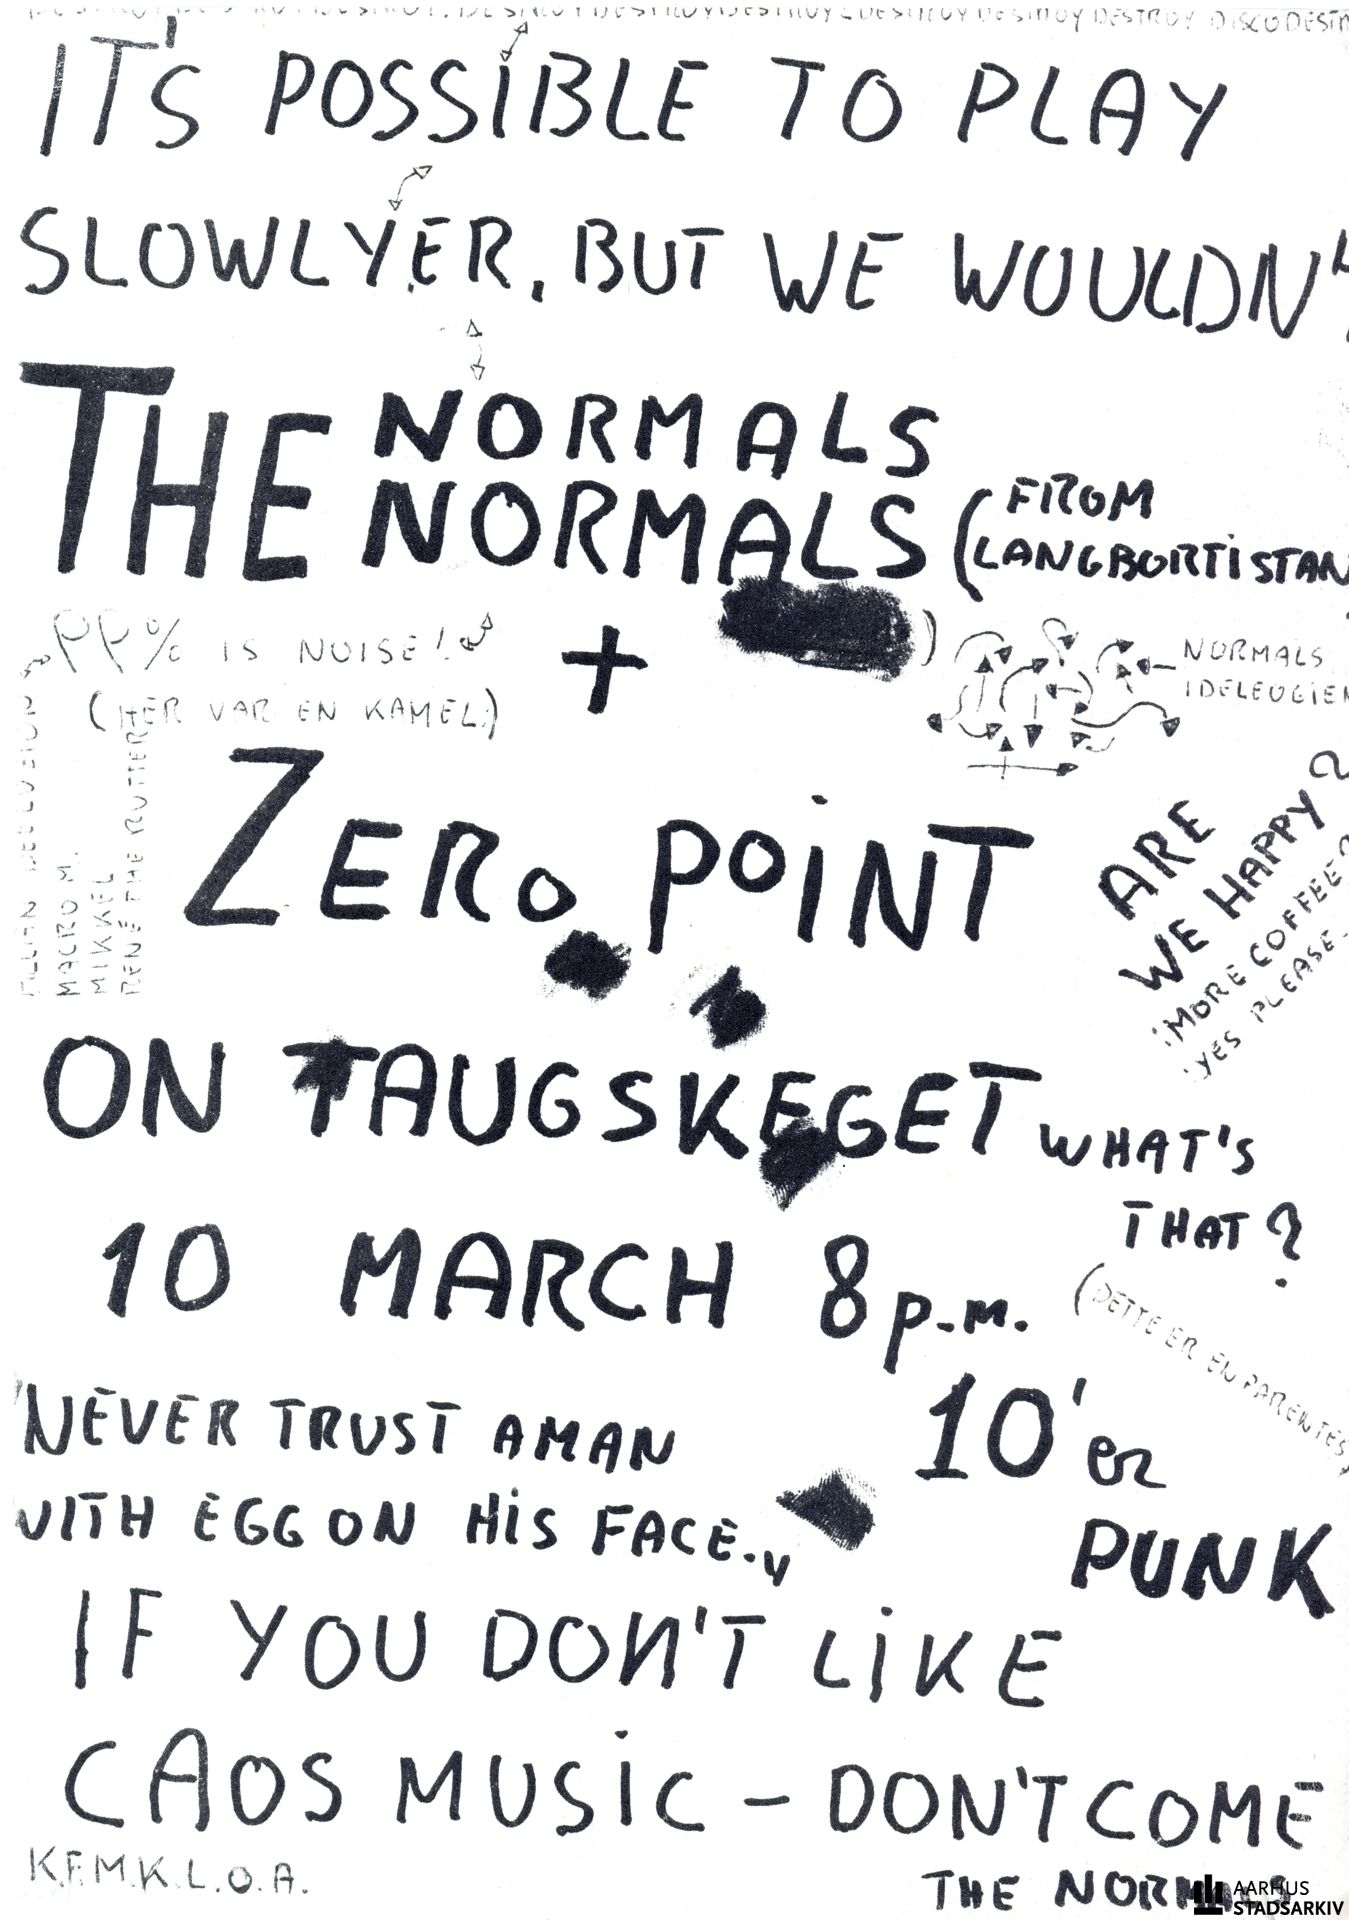 DESTROY DESTROY DESTROY DESTROY DISCO DESTR
IT'S POSSIBLE TO PLAY
SLOWLYER, BUT WE WOULDN'
THE NORMALS
NORMALS
(FROM
LANGBORTISTAN
)
99% IS NOISE!
(HER VAR EN KAMEL)
+
NORMALS
IDELEOGIEN
DELUSION
MACRO M.
MIKKEL
RENÉ THE RUTTER
ZERO POINT
ARE
WE HAPPY?
'MORE COFFEE?
'YES PLEASE-
ON TAUGSKEGET
WHAT'S
THAT?
10 MARCH 8 p.m.
(DETTE ER EN PARENTES)
10'er
PUNK
'NEVER TRUST A MAN
WITH EGG ON HIS FACE.,,
IF YOU DON'T LIKE
CAOS MUSIC - DON'T COME
K.F.M.K.L.O.A.
THE NORMALS
AARHUS
STADSARKIV